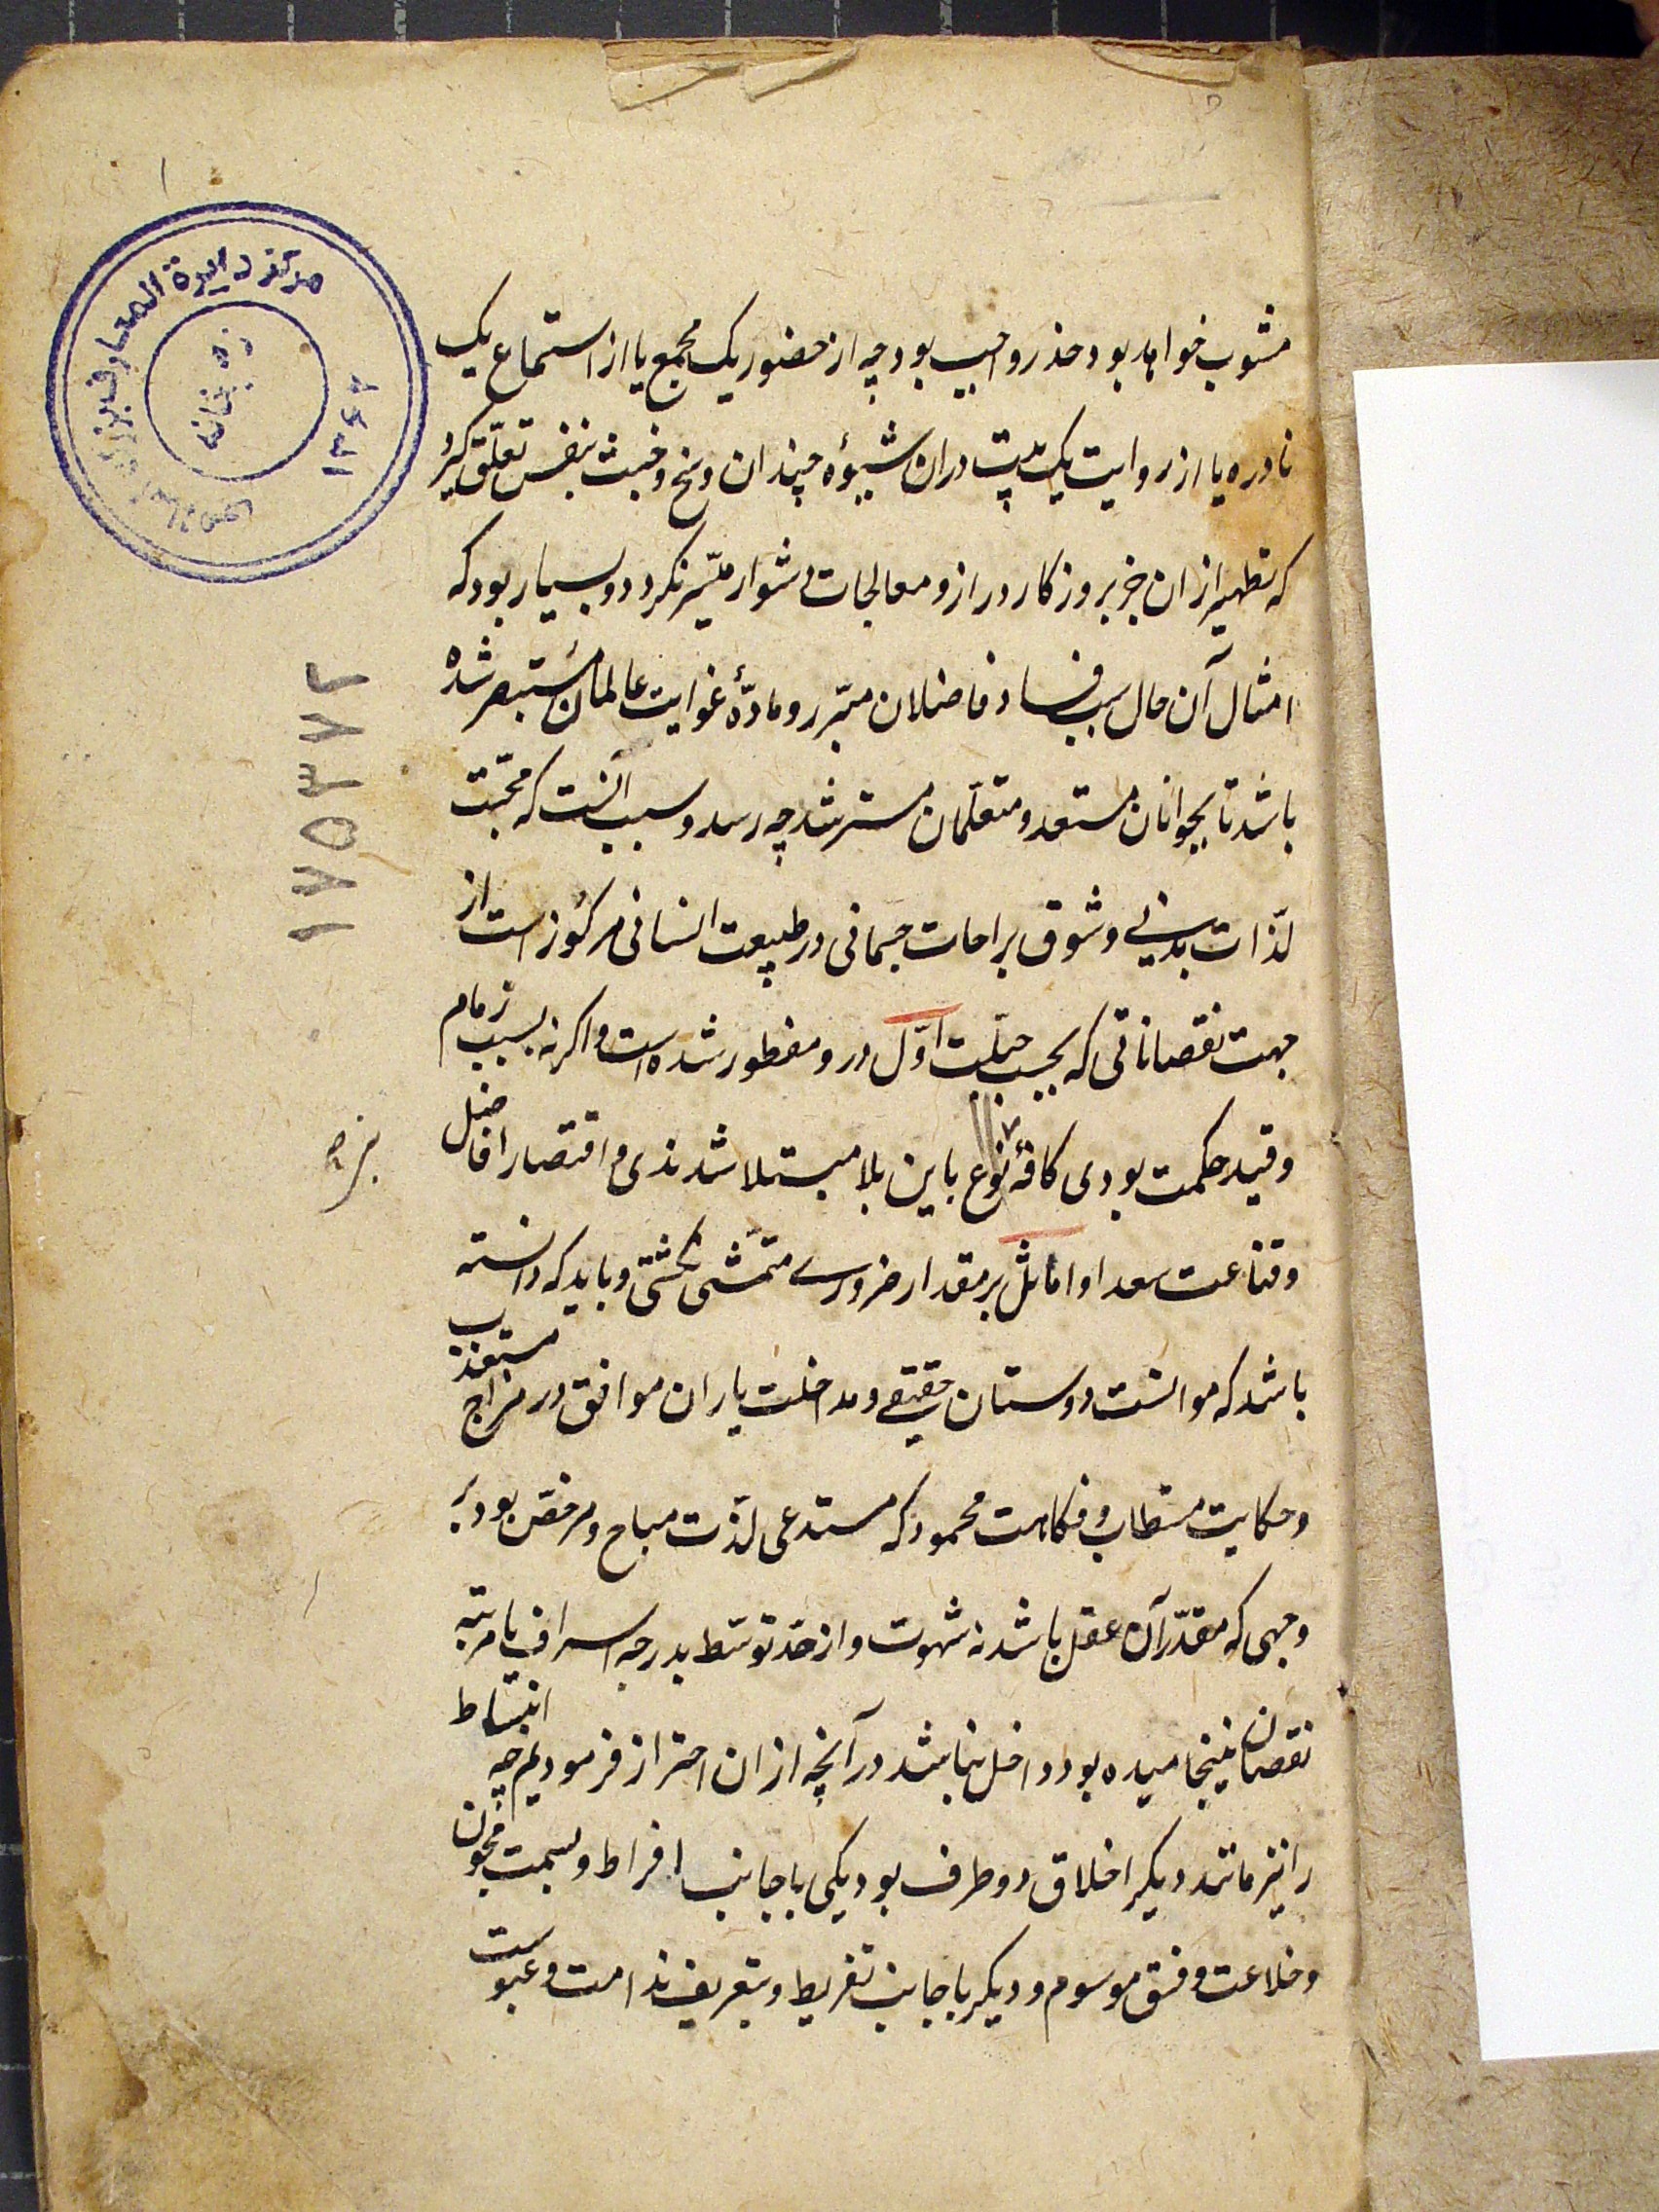 مشوب خواهد بود حذر واجب بود چه از حضور یک مجمع یا از استماع یک
نادره یا از روایت یک بیت دران شیوهٔ چندان وسخ و خبث بنفس تعلّق گیرد
که تطهیر ازان جز بروزکار دراز و معالجات دشوار میسّر نکردد و بسیار بود که
امثال آن حال سبب فساد فاضلان مبّرر و مادّهٔ غوایت عالمان مستبصر شده
باشد تا بجوانان مستعد و متعلّمان مسترشد چه رسد و سبب آنست که محبّت
لذّات بدنی و شوق براحات جسمانی در طبیعت انسانی مرکوز است از
جهت نقصاناتی که بحسب جبلّت اوّل درو مفطور شده است و اکرنه بسبب زمام
و قید حکمت بودی کافهٔ نوع باین بلا مبتلا شدندی و اقتصار افاضل
و قناعت سعدا و اماثل بر مقدار ضروری متمّشی نکشتی و باید که دانسته
باشد که موانست دوستان حقیقی و مداخلت یاران موافق در مزاج مستعذب
و حکایت مستطاب و فکاهت محمود که مستدعی لذّت مباح و مرخّص بود بر
وجهی که مقدّر آن عقل باشد نه شهوت و از حدّ توسّط بدرجه اسراف یا مرتبه
نقصان نینجامیده بود داخل نباشد در آنچه ازان احتراز فرمودیم چه انبساط
را نیز مانند دیکر اخلاق دو طرف بود یکی با جانب افراط و بسمت مجون
و خلاعت و فسق موسوم و دیکر با جانب تفریط و بتعریف فدامت و عبوست
مرکز دایرة المعارف بزرگ اسلامی
کتابخانه
۱۳۶۲
۱۷۵۳۷۲